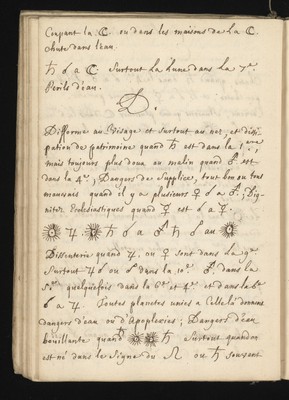 Coupant la ☾. ou dans les maisons de la ☾.
chute dans l'eau.
♄ ☌ a ☾. Surtout la Lune dans la 7.e
Perils d'eau.
D.
Difforme au Visage et surtout au nez, et dissi-
pation de patrimoine quand ♄ est dans la
mais toujours plus doux au matin quand est
dans la 4.e; Dangers de Supplice, tout bon ou tres
mauvais quand il y a plusieurs ☿ ☌ a; Dig-
nitez Ecclesiastiques quand ☿ est ☌ a
☉ ♃ ☉ ♄ ☌ a ♄ ☌ au ☉
Dissenterie quand ♃. ou ☿ sont dans la 9.e
Surtout ♃ ☌ ou dans la 10.e dans la
quelquefois dans la 6.e et 4.e et dans la
☌ a ♃ Toutes planetes unies a Celle là donnent
dangers d'eau ou d'Apoplexies; Dangers d'eau
bouillante quand ☉ ☉ ♄ Surtout quand on
est né dans le Signe du ♌ ou ♄ souvent